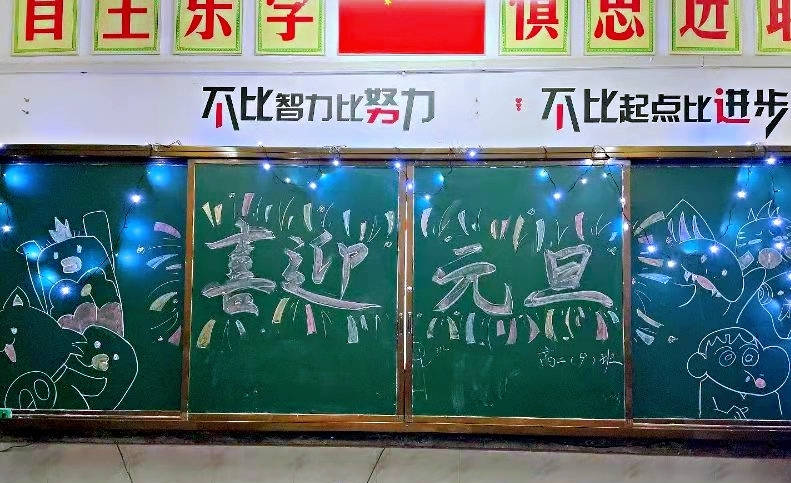 自主乐学 慎思进取
不比智力比努力 不比起点比进步
喜迎 元旦
高二(9)班